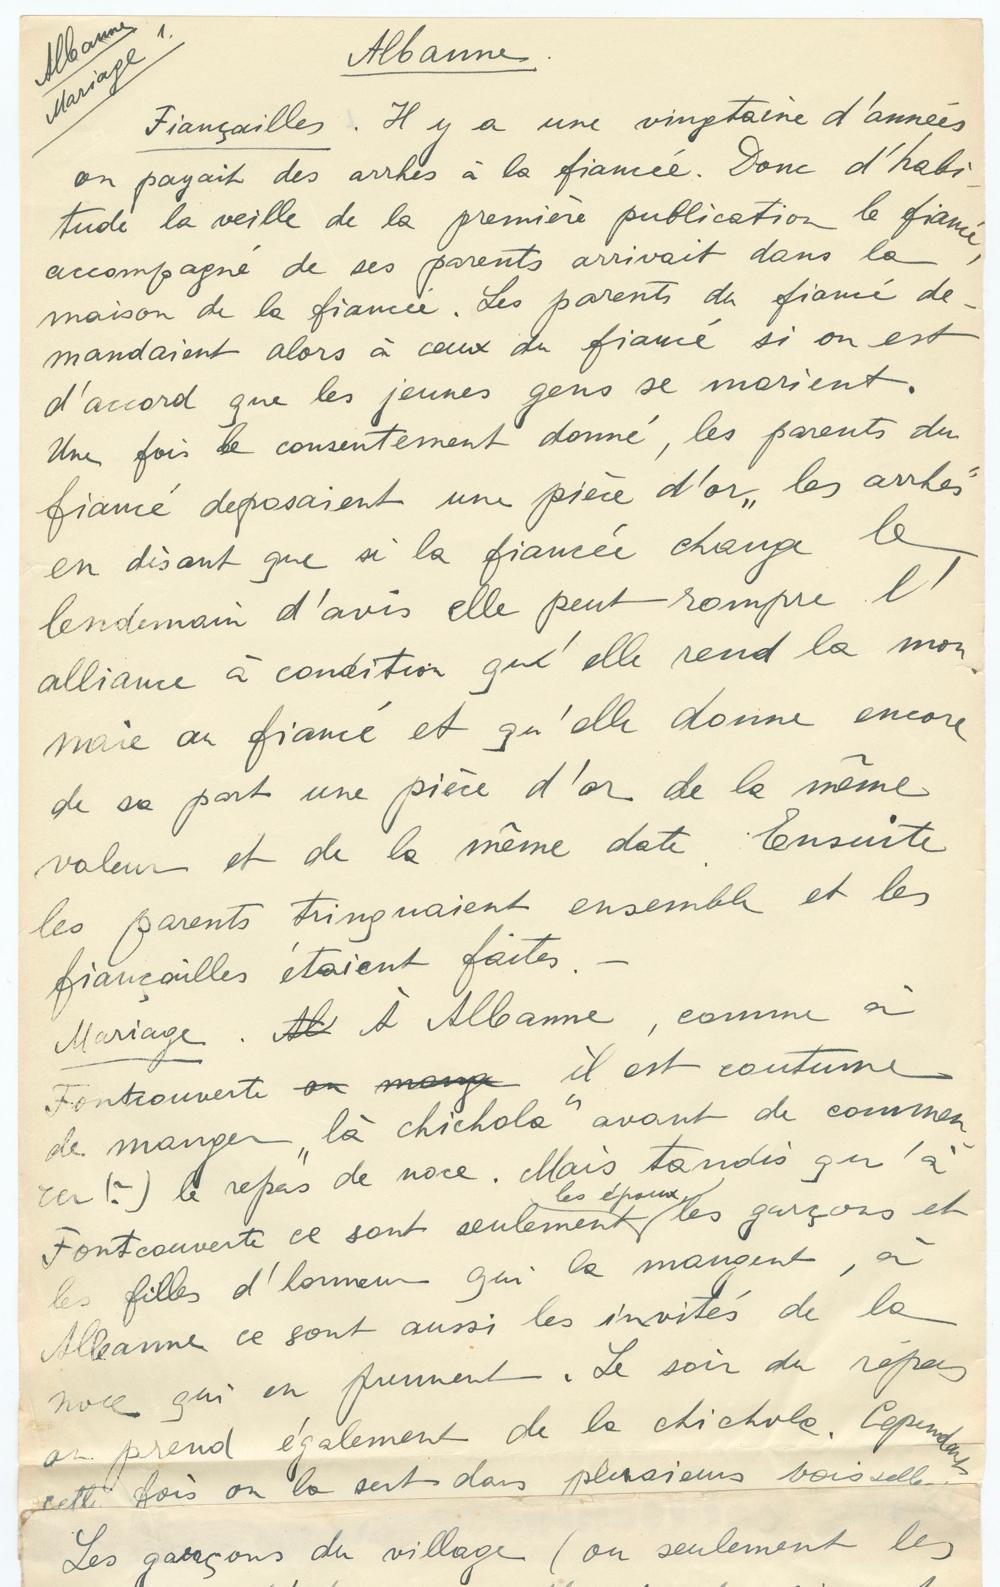 Albanne
Mariage 1.
Albanne.
Fiançailles. Il y a une vingtaine d'années
on payait des arrhes à la fiancée. Donc d'habi-
tude la veille de la première publication le fiancé,
accompagné de ses parents arrivait dans la
maison de la fiancée. Les parents du fiancé de-
mandaient alors à ceux du fiancé si on est
d'accord que les jeunes gens se marient.
Une fois le consentement donné, les parents du
fiancé deposaient une pièce d'or „les arrhes"
en disant que si la fiancée change le
lendemain d'avis elle peut rompre l'
alliance à condition qu'elle rend la mon-
naie au fiancé et qu'elle donne encore
de sa part une pièce d'or de la même
valeur et de la même date. Ensuite
les parents tringuaient ensemble et les
fiançailles étaient faites. —
Mariage. Al À Albanne, comme à
Fontcouverte on mange il est coutume
de manger „la chichola" avant de commen-
cer (?) le repas de noce. Mais tandis qu'à
Fontcouverte ce sont seulement les époux, les garçons et
les filles d'honneur qui la mangent, à
Albanne ce sont aussi les invités de la
noce qui en prennent. Le soir du répas
on prend également de la chichola. Cependant
cette fois on la sert dans plusieurs vaisselle.
Les garçons du village (ou seulement les